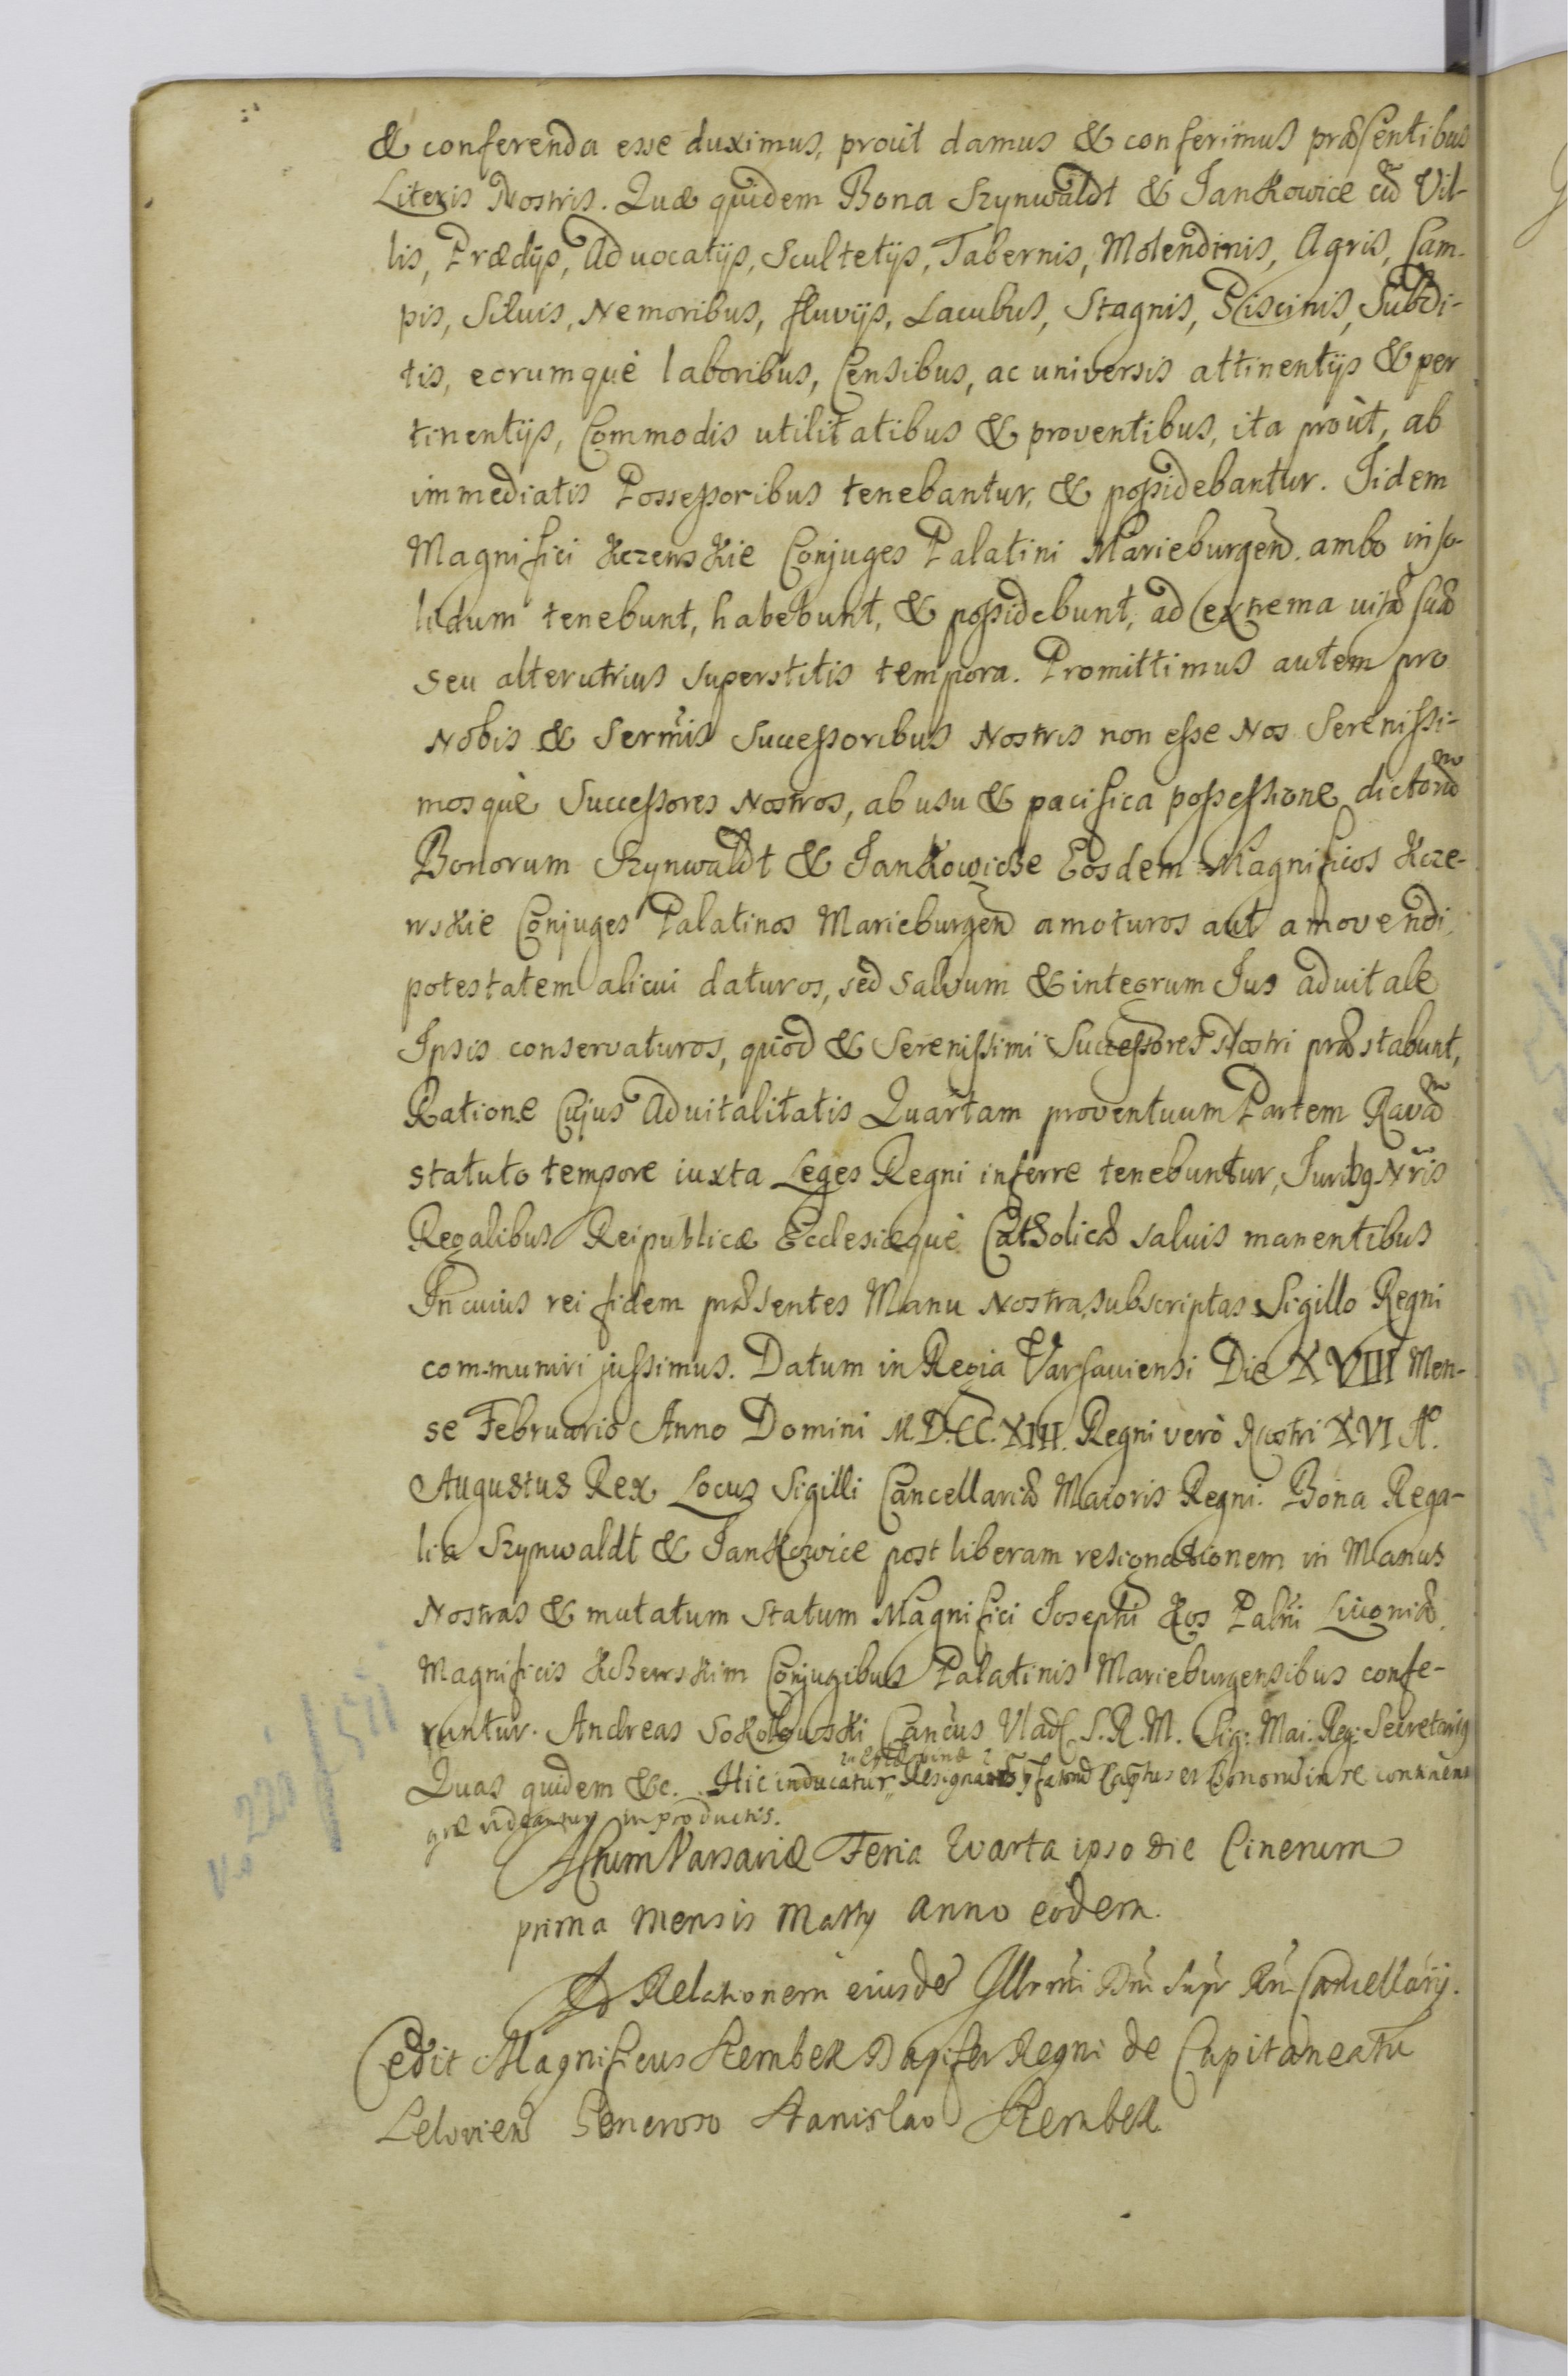 & conferenda esse duximus, proùt damus & conferimus præsentibus
Literis Nostris. Quæ quidem Bona Szynwaldt & Jankowice cũ Vil-
lis, Prædijs, Advocatijs, Scultetijs, Tabernis, Molendinis, Agris, Cam-
pis, Siluis, Nemoribus, fluvijs, Lacubus, Stagnis, Piscinis, Subdi-
tis, eorumquè laboribus, Censibus, ac universis attinentijs & per
tinentijs, Commodis utilitatibus & proventibus, ita proùt, ab
immediatis Possessoribus tenebantur, & possidebantur. Iidem
Magnifici Kczewskie Conjuges Palatini Marieburgen. ambo in so-
lidum tenebunt, habebunt, & possidebunt, ad extrema uitæ suæ
seu alterutrius superstitis tempora. Promittimus autem pro
Nobis & Sermis Successoribus Nostris non esse Nos Serenissi-
mosquè Successores Nostros, ab usu & pacifica possessione dictorũ
Bonorum Szynwaldt & Jankowicze Eosdem Magnificos Kcze-
wskie Conjuges Palatinos Marieburgen amoturos aut amovendi
potestatem alicui daturos, sed salvum & integrum Jus aduitale
Ipsis conservaturos, quod & Serenissimi Successores Nostri præstabunt,
Ratione Cujus Aduitalitatis Quartam proventuum Partem Ravã
statuto tempore iuxta Leges Regni inferre tenebuntur, Juribq Nris
Regalibus Reipublicæ Ecclesiæquè Catholicæ saluis manentibus
In cuius rei fidem præsentes Manu Nostra subscriptas Sigillo Regni
com-muniri jussimus. Datum in Regia Varsauiensi Die XVIII Men-
se Februario Anno Domini M.D.CC.XIII. Regni verò Nostri XVI Aº.
Augustus Rex Locus Sigilli Cancellariæ Maioris Regni. Bona Rega-
lia Szynwaldt & Jankowice post liberam resignationem in Manus
Nostras & mutatum statum Magnifici Josephi Kos Palni Livoniæ.
Magnificis Kczewskim Conjugibus Palatinis Marieburgensibus confe-
runtur. Andreas Sokolowski Cancus Vlad. S.R.M. Sig: Mai. Reg: Secretariq
Quas quidem &c. Hic inducatur Bonorũ in re
videantur in productis.
Actum Varsaviæ Feria Quarta ipso die Cinerum
prima mensis Martij anno eodem.
Ad Relationem eiusdẽ Illrmi Dni Supr Rni Cancellarij.
Cedit Magnificus Szembek Dapifer Regni de Capitaneatu
Lelovien Generoso Stanislao Szembek
No 220